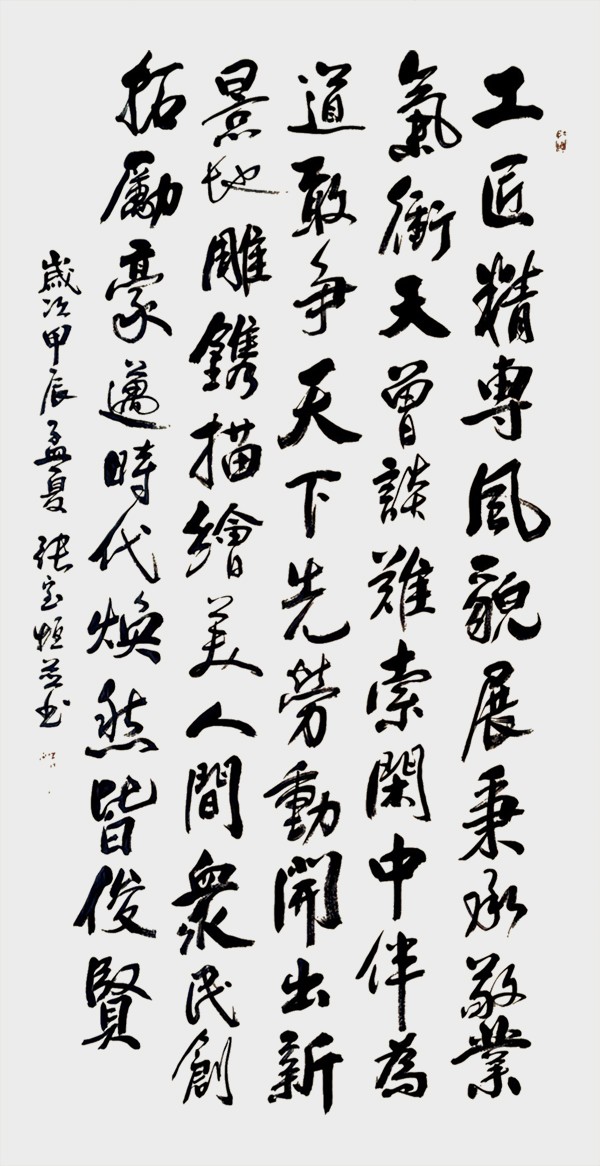 工匠精專風貌展秉承敬業
氣衝天曾談難索閑中伴為
道敢爭天下先勞動開出新
景地雕鐫描繪美人間衆民創
拓勵豪邁時代煥然皆俊賢
歲次甲辰孟夏 張宝恒并书